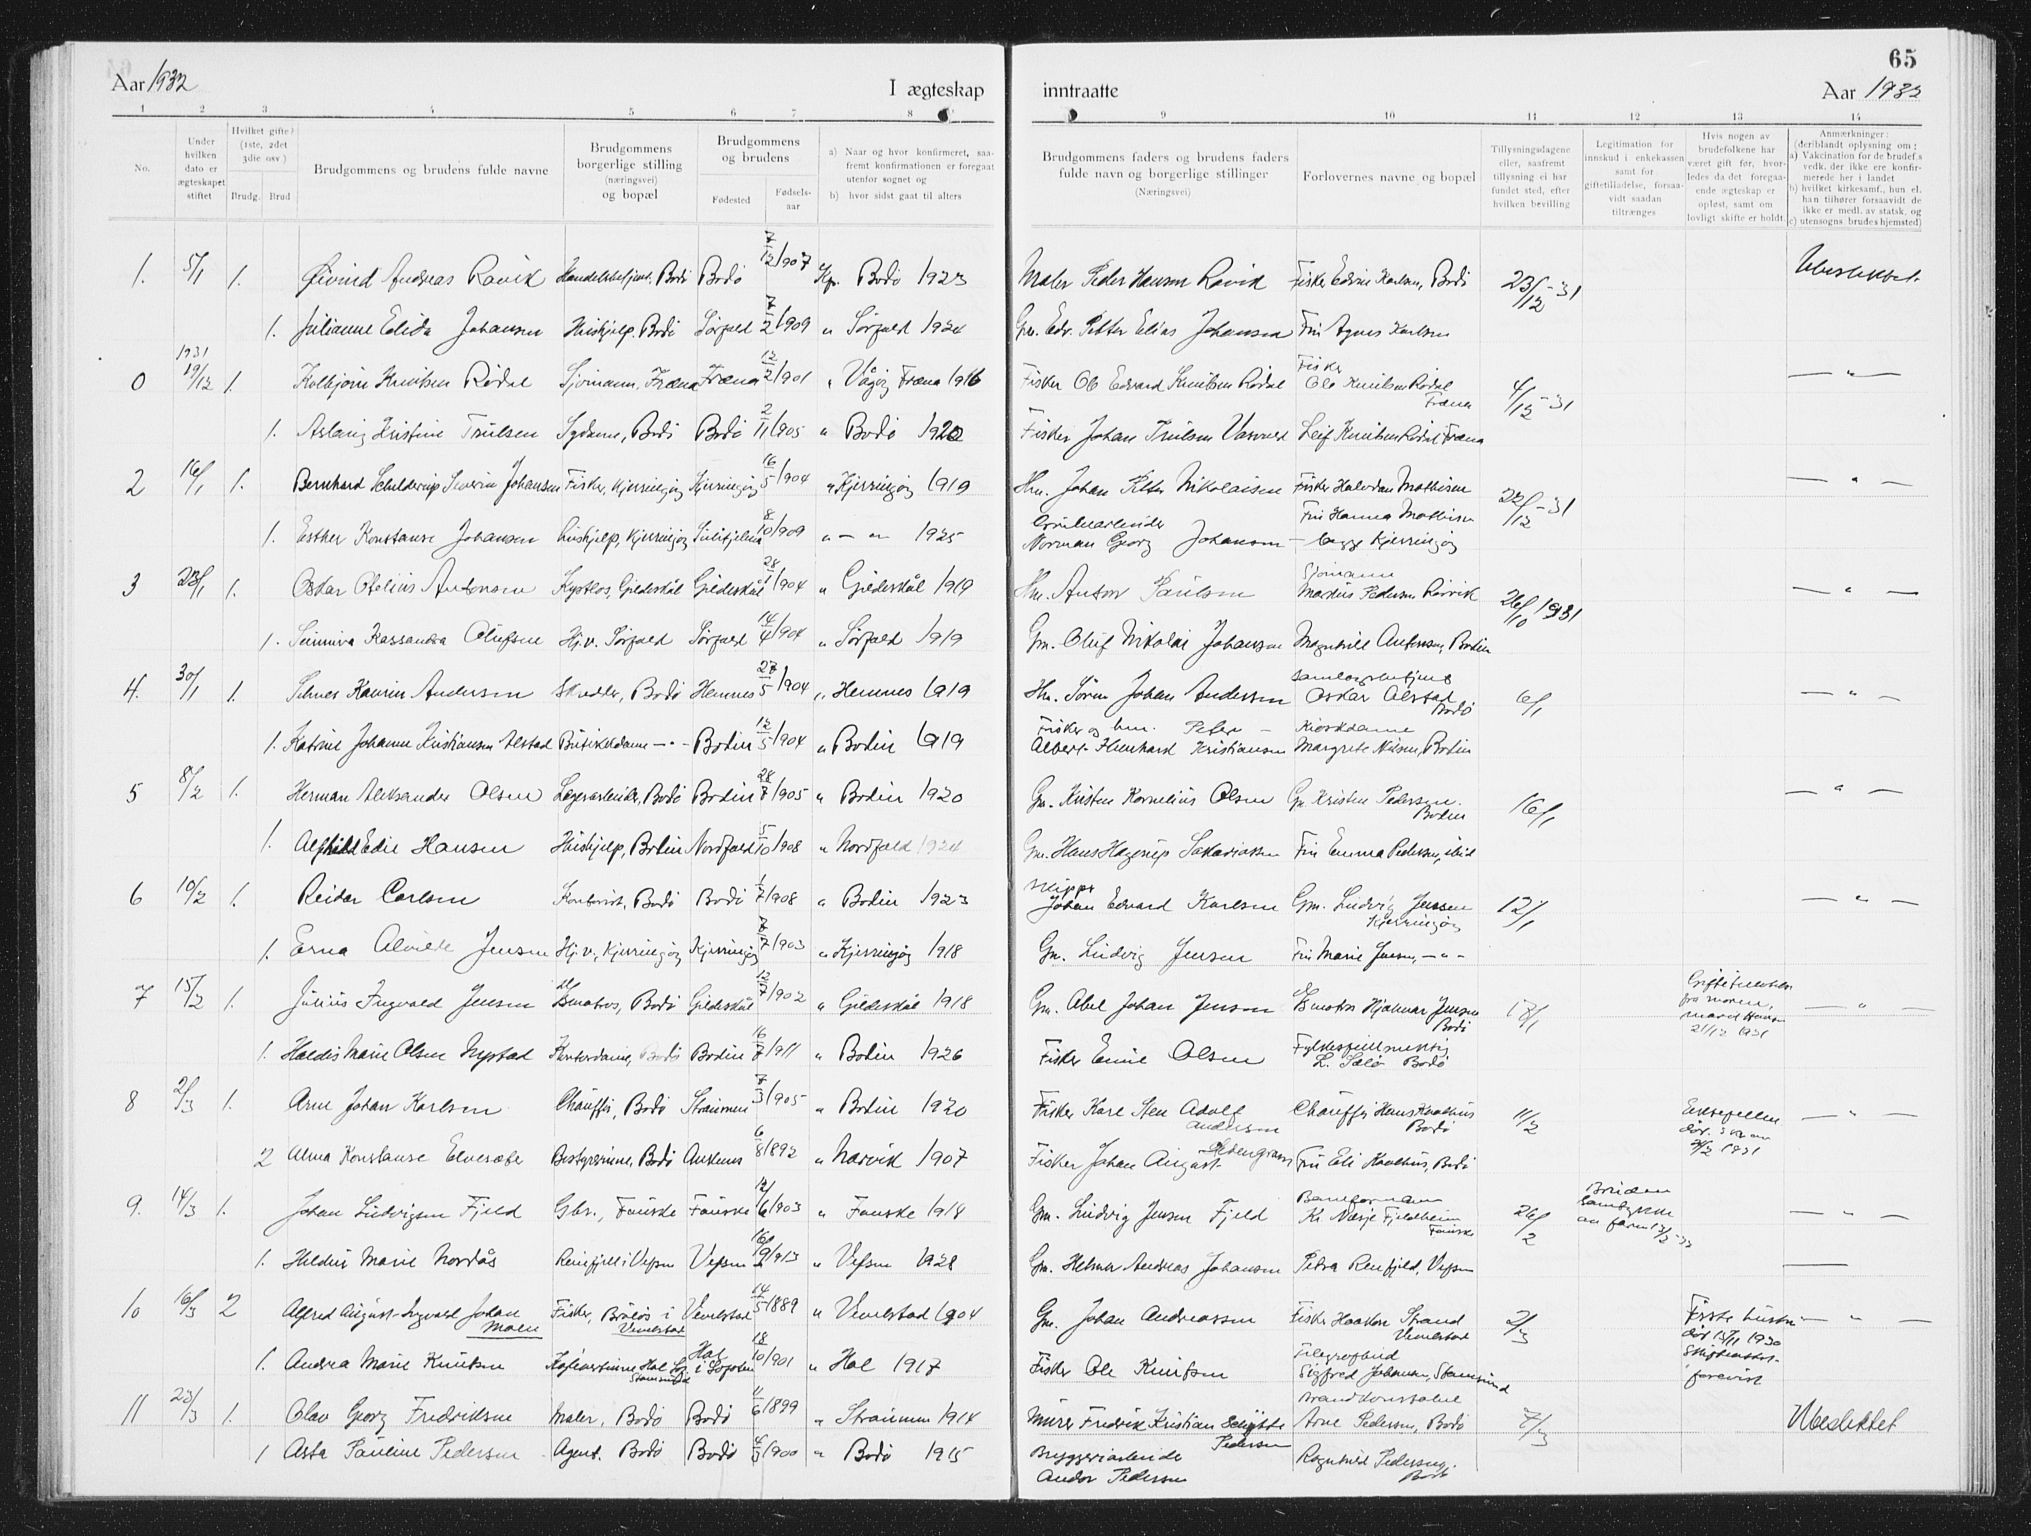 65
Aar 1932
I ægteskap
inntraatte
Aar 1932
1 2 3 4 5 6 7 8 9 10 11 12 13 14
No.
Under hvilken dato er ægteskapet stiftet
Hvilket gifte? (1ste, 2det 3die osv.)
Brudg. Brud
Brudgommens og brudens fulde navne
Brudgommens borgerlige stilling (næringsvei) og bopæl
Brudgommens og brudens
Fødested
Fødsels-aar
a) Naar og hvor konfirmeret, saafremt konfirmationen er foregaat utenfor sognet og
b) hvor sidst gaat til alters
Brudgommens faders og brudens faders fulde navn og borgerlige stillinger (Næringsvei)
Forlovernes navne og bopæl
Tillysningsdagene eller, saafremt tillysning ei har fundet sted, efter hvilken bevilling
Legitimation for innskud i enkekassen samt for giftetilladelse, forsaavidt saadan tiltrænges
Hvis nogen av brudefolkene har været gift før, hvorledes da det foregaaende ægteskap er opløst, samt om lovligt skifte er holdt.
Anmærkninger: (deriblandt oplysning om:
a) Vakcination for de brudef.s vedk. der ikke ere konfirmerede her i landet
b) hvilket kirkesamf., hun el. han tilhører forsaavidt de ikke er medl. av statsk. og
c) utensogns brudes hjemsted)
1. 5/1 1. Øivind Andreas Ravik Handelsbetjent, Bodø Bodø 7/12 1907 Kp. Bodø 1923 Maler Peder Hansen Ravik Fisker Edvin Karlsen, Bodø 23/12-31 Ubeslektet.
1. Julianne Elida Johansen Hushjelp, Bodø Sørfold 7/2 1909 " Sørfold 1924 Gm. Edv. Petter Elias Johansen Fru Agnes Karlsen
0 1931 19/12 1. Kolbjørn Knutsen Rødal Sjømann, Fræna Fræna 12/2 1901 " Vågøy Fræna 1916 Fisker Ole Edvard Knutsen Rødal Fisker Ole Knutsen Rødal Fræna 4/12-31 — " —
1. Aslaug Kristine Trulsen Sydame, Bodø Bodø 2/11 1905 " Bodø 1920 Fisker Johan Trulsen Leif Knutsen Rødal Fræna
2 16/1 1. Bernhard Schelderup Severin Johansen Fisker, Kjerringøy Kjerringøy 16/5 1904 " Kjerringøy 1919 Hm. Johan Petter Nikolaisen Fisker Halvdan Mathisen 22/12-31 — " —
1. Esther Konstanse Johansen hushjelp, Kjerringøy Sulitjelma 8/10 1909 " — " — 1925 Grubearbeider Norman Georg Johansen Fru Hanna Mathisen — begge Kjerringøy
3 23/1 1. Oskar Otelius Antonsen Gildeskål Gildeskål 28/1 1904 " Gildeskål 1919 Hm. Anton Paulsen Sjømann Markus Pedersen Rørvik 26/10 1931 — " —
1. Sunniva Kassandra Olufsen Hj.v. Sørfold Sørfold 14/4 1904 " Sørfold 1919 Gm. Oluf Nikolai Johansen Magnhild Antonsen, Bodin
4. 30/1 1. Kaurin Andersen Skredder, Bodø Hemnes 27/5 1904 " Hemnes 1919 Hm. Søren Johan Andersen Samlagsbetjent Oskar Alstad Bodø 6/1 — " —
1. Katrine Johanne Kristiansen Alstad Butikkdame — " — Bodin 12/5 1904 " Bodin 1919 Fisker og hm. Peter Albert Kristiansen Kioskdame Margrete Nilsen, Bodin
5 8/2 1. Herman Aleksander Olsen Lagerarbeider, Bodø Bodin 28/7 1905 " Bodin 1920 Gm. Kristen Kornelius Olsen Gm. Kristen Pedersen. Bodin 16/1 — " —
1. Alfhild Edie Hansen Hushjelp, Bodin Nordfold 5/10 1908 " Nordfold 1924 Gm. Hans Hagerup Sakariassen Fru Emma Pedersen, ibid
6 10/2 1. Reidar Carlsen Kontorist, Bodø Bodø 1/7 1908 " Bodin 1923 Skipper Johan Edvard Karlsen Gm. Ludvig Jensen Kjerringøy 12/1 — " —
1. Erna Alvilde Jensen Hj.v., Kjerringøy Kjerringøy 7/7 1903 " Kjerringøy 1918 Gm. Ludvig Jensen Fru Marie Jensen, — " —
7 15/2 1. Julius Ingvald Jensen Bodø Gildeskål 12/7 1902 " Gildeskål 1918 Gm. Abel Johan Jensen Hjalmar Jensen Bodø 18/1 fra moren, 21/12 1931 — " —
1. Haldis Marie Olsen Nystad Kontordame, Bodø Bodin 16/7 1911 " Bodin 1926 Fisker Emil Olsen L. Sælø Bodø
8 2/3 1. Arne Johan Karlsen Chauffør, Bodø Straumen 7/3 1905 " Bodin 1920 Fisker Karl Sten Adolf Andersen Chauffør Hans Knathus Bodø 11/2 Ektefellen død 1931 — " —
2 Alma Konstanse Bestyrerinne, Bodø Ankenes 6/8 1892 " Narvik 1907 Fisker Johan August Fru Eli Bodø
9. 14/3 1. Johan Ludvigsen Fjeld Gbr., Fauske Fauske 12/6 1903 " Fauske 1918 Gm. Ludvig Jensen Fjeld Baneformann Fjeldheim Fauske 26/2 Brudens samtykke — " —
1. Heldur Marie Nordås Vefsn 16/9 1913 " Vefsn 1928 Gm. Helmer Andreas Johansen Petra Renfjeld, Vefsn —
10 16/3 2 Alfred August Ingvald Johan Moen Fisker, i Vevelstad Vevelstad 14/5 1889 " Vevelstad 1904 Gm. Johan Andreassen Fisker Haakon Strand Vevelstad 2/3 Første hustru død 15/11 1930 Skifteattest forevist — " —
1. Andrea Marie Knutsen Stamsund Hol i Lofoten 18/10 1901 " Hol 1917 Fisker Ole Knutsen Sigfred Johansen, Stamsund
11 23/3 1. Olav Georg Fredriksen Maler, Bodø Bodø 11/6 1899 " Straumen 1914 Murer Fredrik Kristian Schjøtte Pedersen Brandkonstabel Arne Pedersen, Bodø 7/3 Ubeslektet
1 Asta Pauline Pedersen Agent. Bodø Bodø 4/3 1900 " Bodø 1915 Bryggeriarbeider Andor Pedersen Ragnhild Pedersen. Bodø